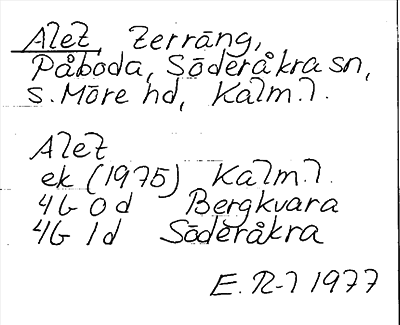 Alet, Terräng,
Påboda, Söderåkra sn,
S. Möre hd, Kalm. l.
Alet
ek (1975) Kalm. l.
4G 0d Bergkvara
4G 1d Söderåkra
E. R-l 1977